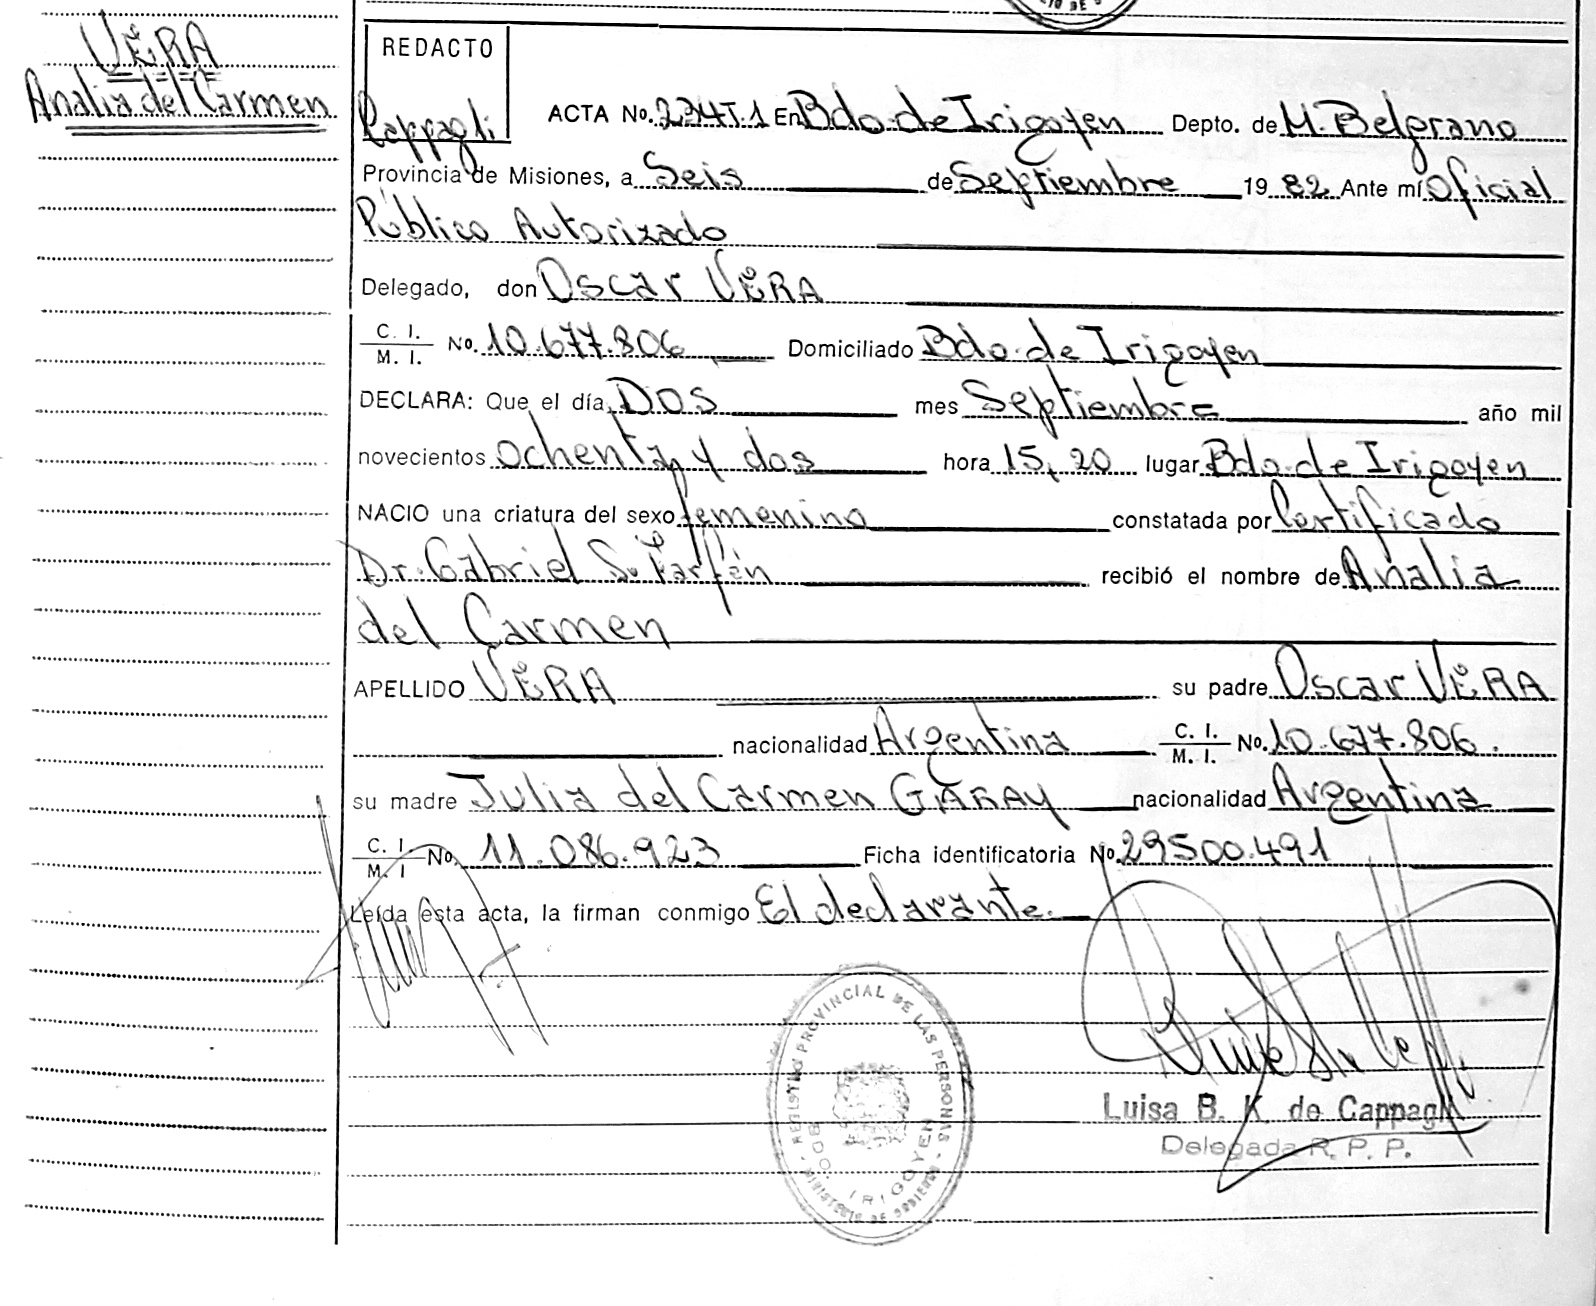 VERA
Analia del Carmen
REDACTO
Cappagli
ACTA No. 224T.1 En Bdo. de Irigoyen Depto. de M. Belgrano
Provincia de Misiones, a Seis de Septiembre 19 82 Ante mí Oficial
Público Autorizado
Delegado, don Oscar VERA
C. I.
M. I. No. 10.677.806 Domiciliado Bdo. de Irigoyen
DECLARA: Que el día Dos mes Septiembre año mil
novecientos ochenta y dos hora 15,20 lugar Bdo. de Irigoyen
NACIO una criatura del sexo femenino constatada por Certificado
Dr. Gabriel S. Farfán recibió el nombre de Analia
del Carmen
APELLIDO VERA su padre Oscar VERA
nacionalidad Argentina C. I.
M. I. No. 10.677.806.
su madre Julia del Carmen GARAY nacionalidad Argentina
C. I.
M. I No. 11.086.923 Ficha identificatoria No 29500.491
Leída esta acta, la firman conmigo El declarante.
REGISTRO PROVINCIAL DE LAS PERSONAS
BDO. IRIGOYEN
MINISTERIO DE GOBIERNO
Luisa B. K. de Cappagli
Delegada R. P. P.